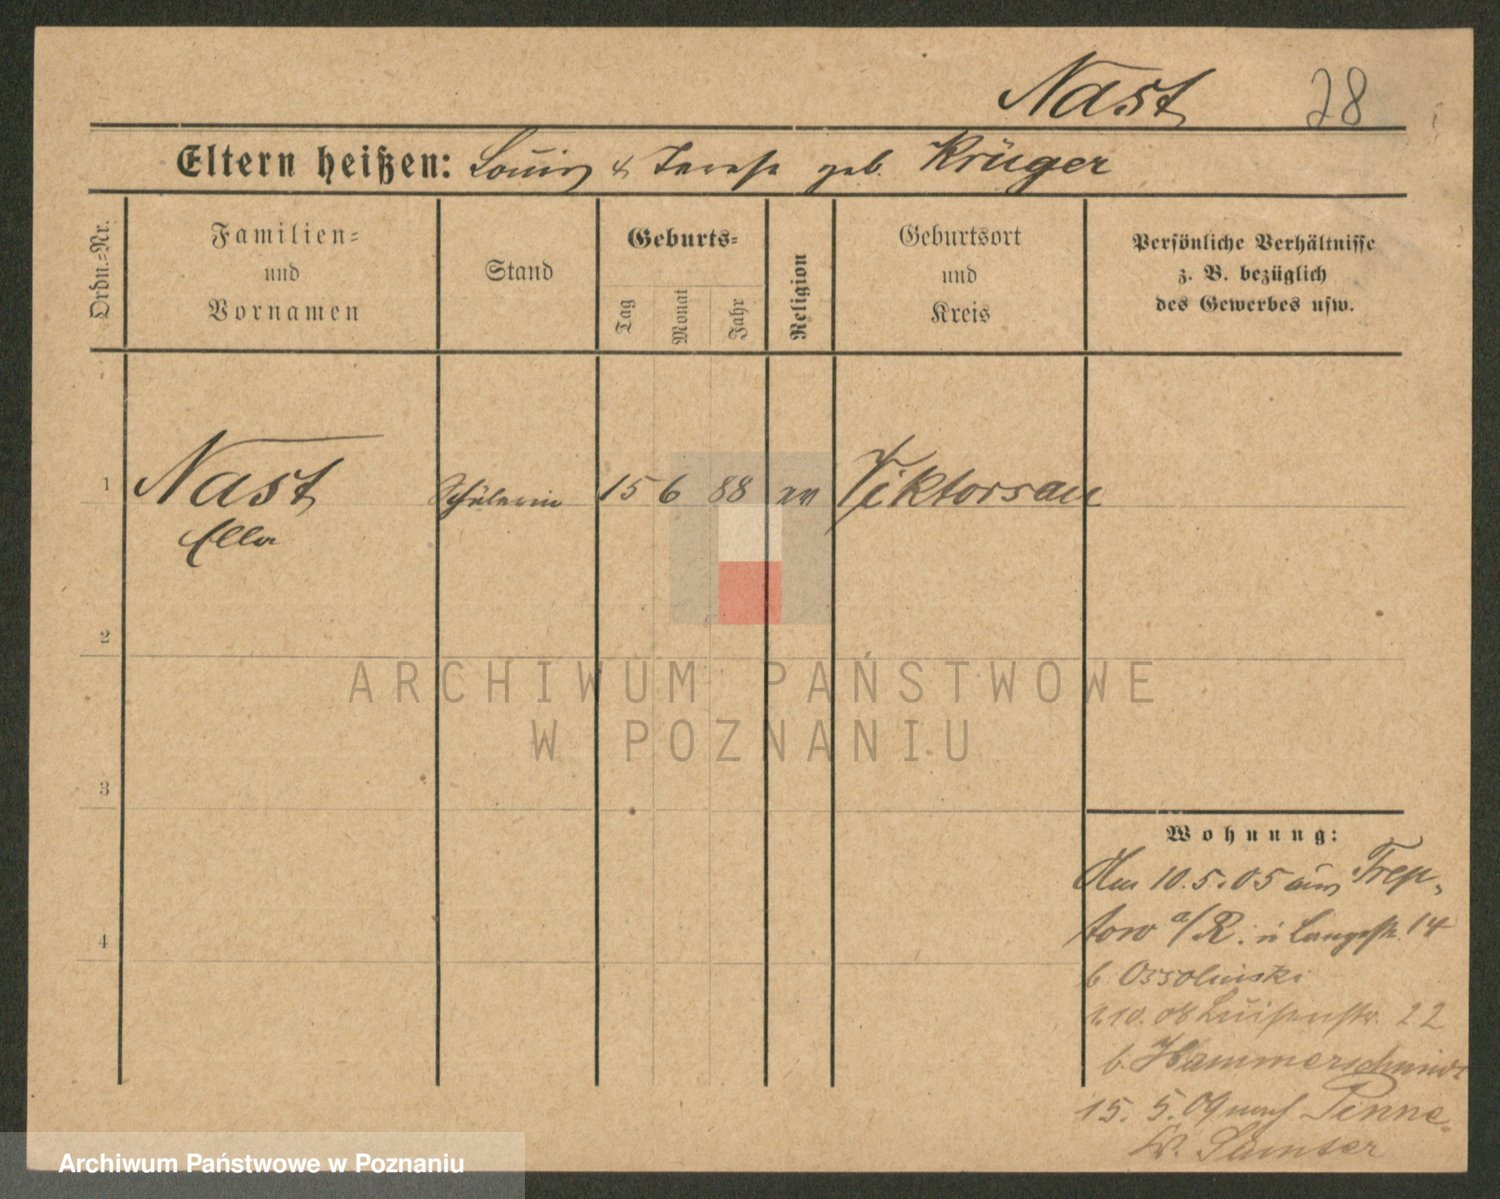 Nast 28
Eltern heißen: Louis & Terese geb. Krüger
Ordn.=Nr.
Familien=
und
Vornamen
Stand
Geburts=
Tag
Monat
Jahr
Religion
Geburtsort
und
Kreis
Persönliche Verhältnisse
z. B. bezüglich
des Gewerbes usw.
1 Nast Schülerin 15 6 88 ev Viktorsau
Ella
2
3
4
Wohnung:
Am 10.5.05 aus Trep-
tow a/R. n Langestr. 14
b Ossolinski
1.10. 08 Luisenstr. 22
b. Hammerschmidt
15. 5. 09 nach Pinne
Kr. Samter
ARCHIWUM PAŃSTWOWE
W POZNANIU
Archiwum Państwowe w Poznaniu